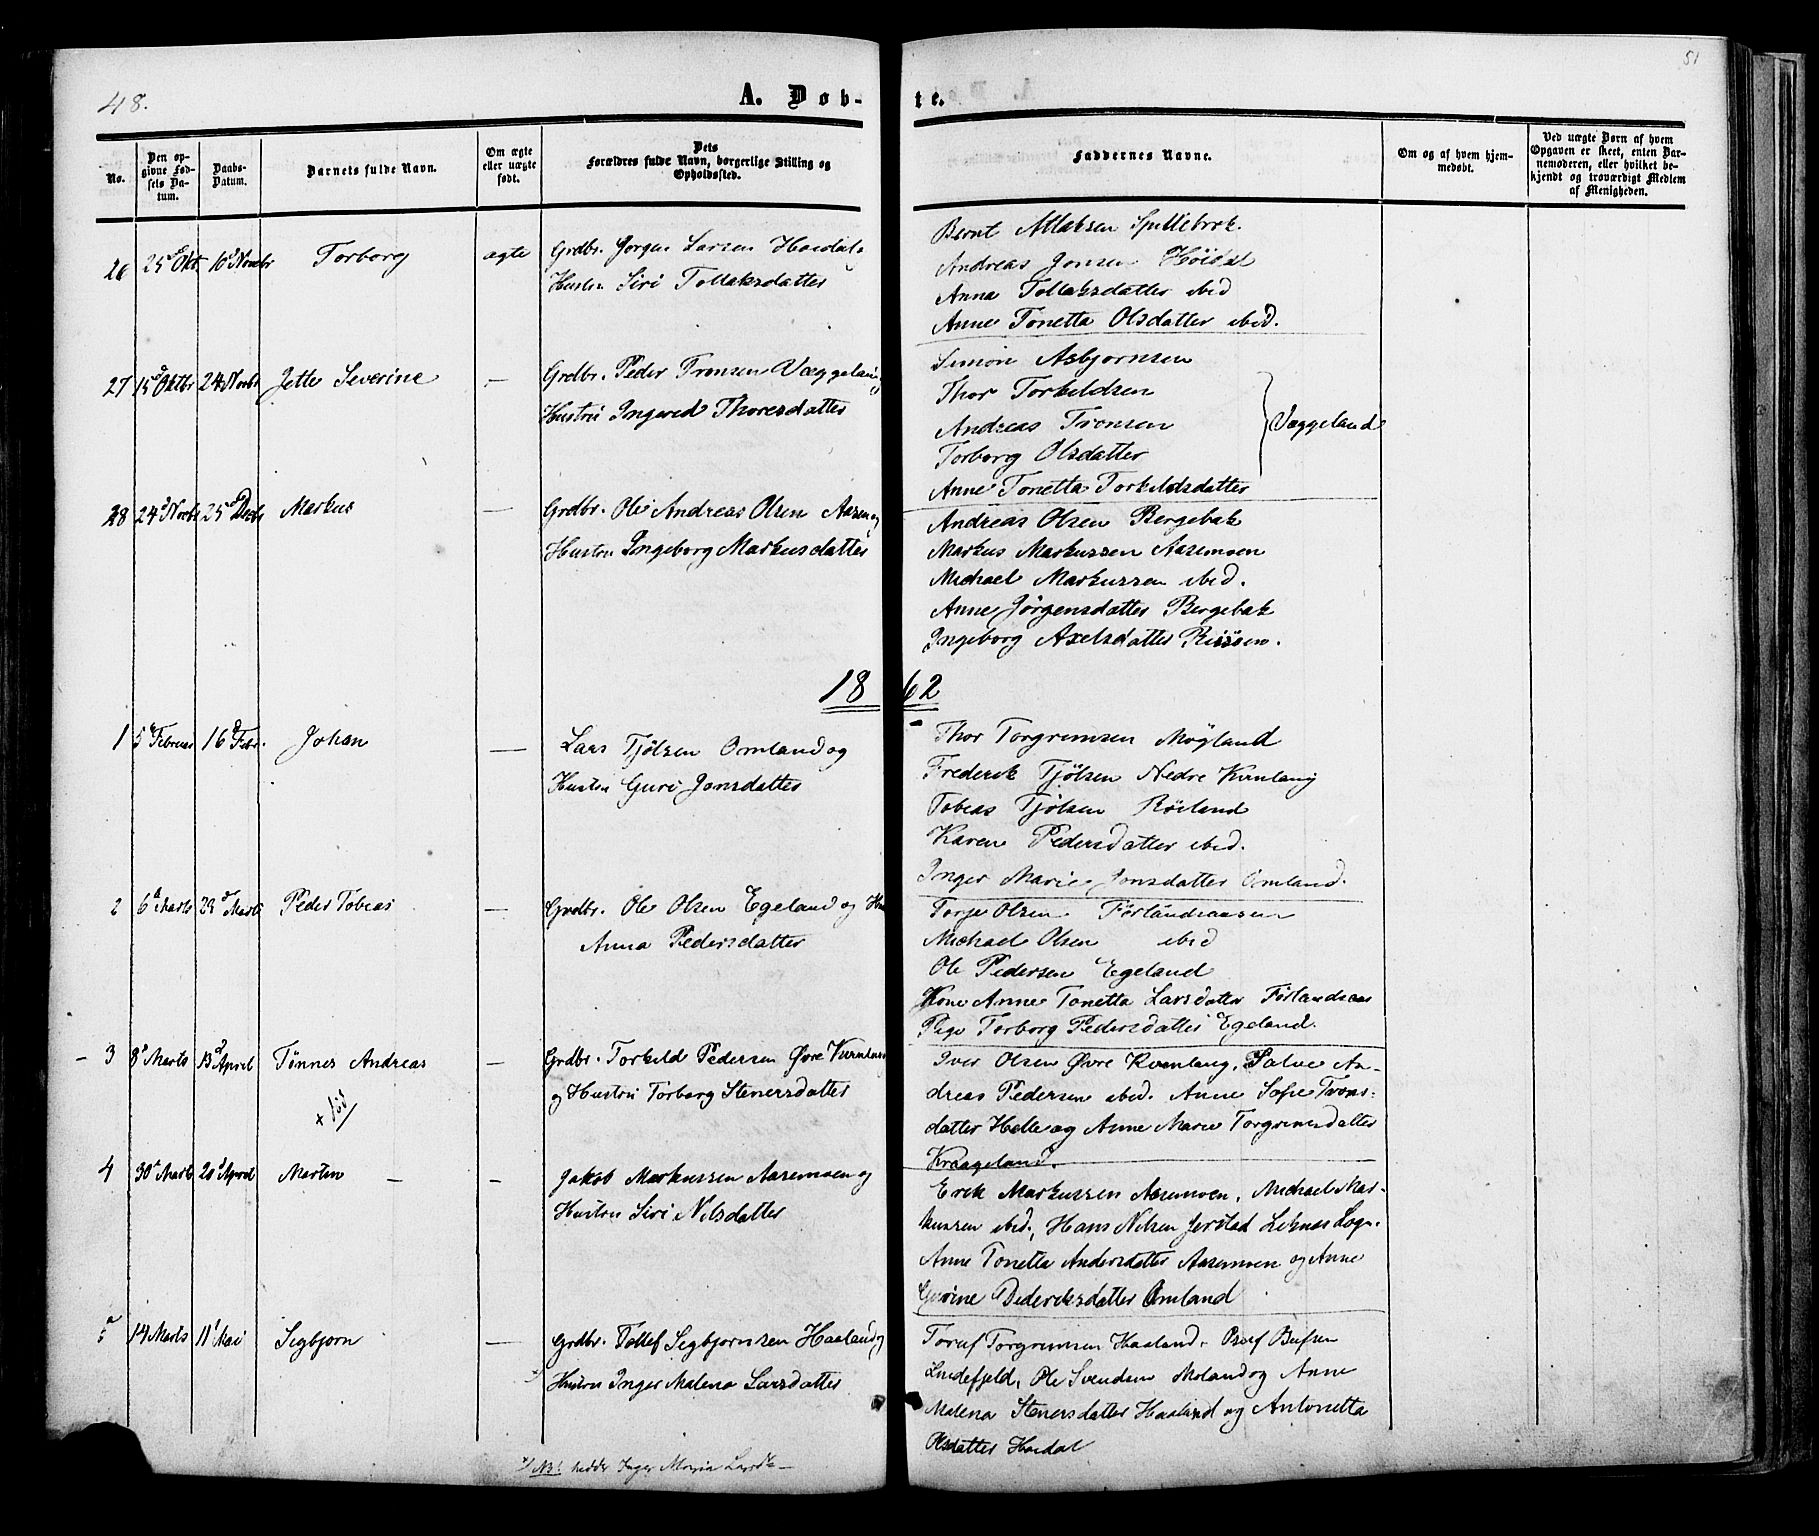 48.
51
A. Døb-
te.
No.
Den op-
givne Fød-
sels Da-
tum.
Daabs-
Datum.
Barnets fulde Navn.
Om ægte
eller uægte
født.
Dets
Forældres fulde Navn, borgerlige Stilling og
Opholdssted.
Faddernes Navne.
Om og af hvem hjem-
medøbt.
Ved uægte Børn af hvem
Opgaven er skeet, enten Bar-
nemoderen, eller hvilket be-
kjendt og troværdigt Medlem
af Menigheden.
26 25de Okt. 10d Novbr Torborg ægte Grdbr. Jørgen Larsen Høidal
Hustru Siri Tollaksdatter
Bernt Atlaksen Spillebrok.
Andreas Jonsen Høidal
Anna Tollaksdatter ibid
Anne Tonetta Olsdatter ibid.
27 15d Oktbr 24 Novbr Jette Severine — Grdbr. Peder Tronsen Væggeland
Hustru Ingered Thoresdatter
Simon Asbjørnsen
Thor Torkildsen
Andreas Tronsen
Torborg Olsdatter
Anne Tonetta Torkildsdatter
Væggeland
28 24d Novbr 25d Decbr Markus — Grdbr. Ole Andreas Olsen Aasen og
Hustru Ingeborg Markusdatter
Andreas Olsen Bergebak
Markus Markussen Aasemoen
Michael Markussen ibid.
Anne Jørgensdatter Bergebak
Ingeborg Axelsdatter Risøen.
1862
1 5d Februar 16d Febr. Johan — Lars Tjølsen Omland og
Hustru Guri Jonsdatter
Thor Torgrimsen Møgland
Frederik Tjølsen Nedre Kvinlaug
Tobias Tjølsen Røiland
Karen Pedersdatter ibid.
Inger Marie Jonsdatter Omland.
2 6d Marts 23d Marts Peder Tobias — Grdbr. Ole Olsen Egeland og Hu
Anna Pedersdatter
Torje Olsen Førlandsaasen
Michael Olsen ibid
Ole Pedersen Egeland
Kone Anne Tonetta Larsdatter Førlandsaas
Pige Torborg Pedersdatter Egeland.
3 8d Marts 13d April Tønnes Andreas — Grdbr. Torkild Pedersen Øvre Kvinlaug
og Hustru Torborg Stenersdatter
Iver Olsen Øvre Kvinlaug, Salve An-
dreas Pedersen ibid. Anne Sofie Trons-
datter Helle og Anne Marie Torgrimsdatter
Kraageland.
4 30d Marts 20d April Martin — — Jakob Markussen Aasemoen og
Hustru Siri Nilsdatter
Erik Markussen Aasemoen, Michael Mar-
kussen ibid., Hans Nilsen Jerstad Liknes Sogn.
Anne Tonetta Andersdatter Aasemoen og Anne
Gurine Dideriksdatter Omland
5 14 Marts 11t Mai Sigbjørn — Grdbr. Tollef Sigbjørnsen Haaland og
Hustru Inger Malena Larsdatter
Toraf Torgrimsen Haaland. Osuf
Lindefjeld, Ole Svendsen Moland og Anne
Malena Stenersdatter Haaland og Antonetta
Olsdatter Høidal
NB! hedder Inger Maria Larsd.